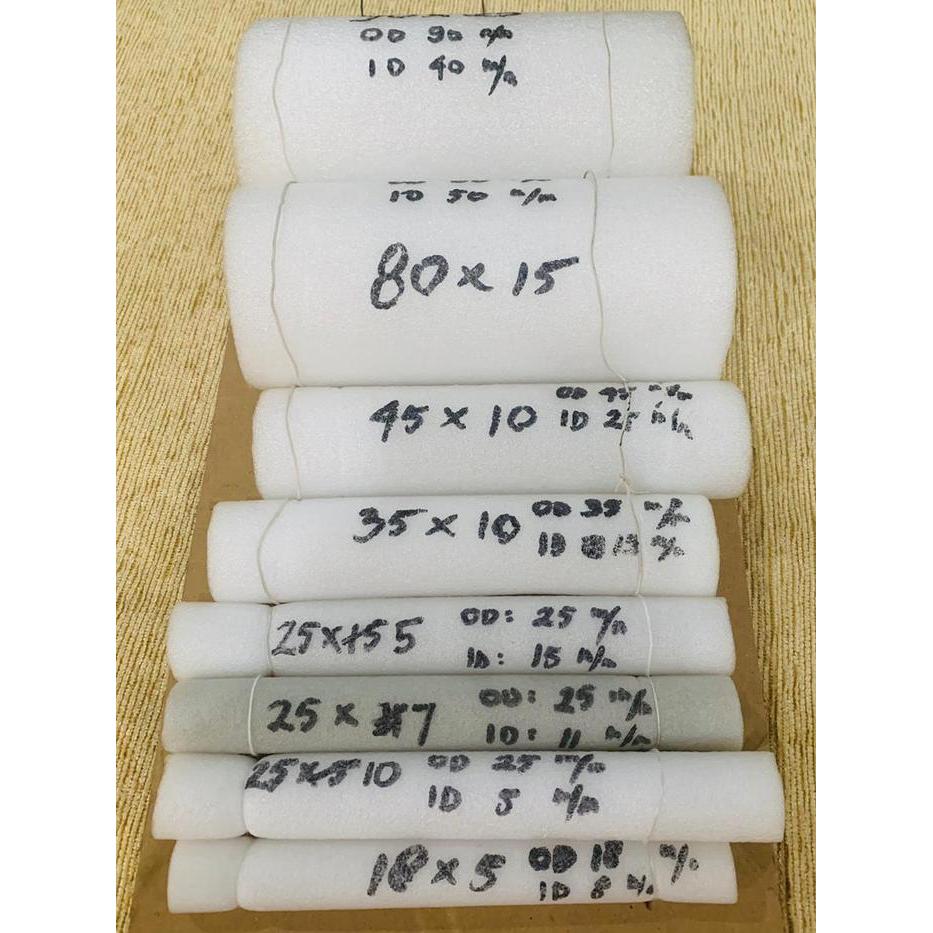 OD 90 m/m
ID 40 m/m
ID 50 m/m
80 x 15
45 x 10 OD 45 m/m
ID 25 m/m
35 x 10 OD 35 m/m
ID 15 m/m
25 x 5 OD: 25 m/m
ID: 15 m/m
25 x 7 OD: 25 m/m
ID: 11 m/m
25 x 10 OD 25 m/m
ID 5 m/m
18 x 5 OD 18 m/m
ID 8 m/m